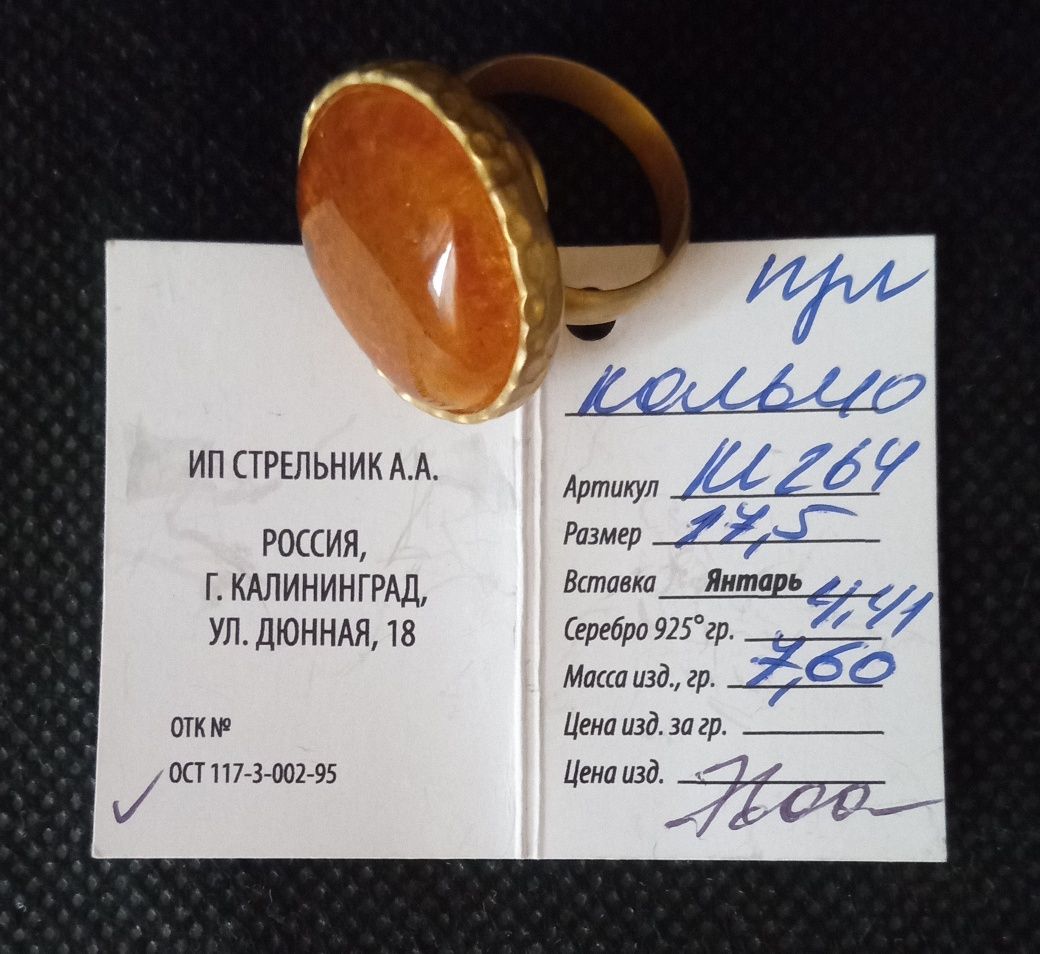 ИП СТРЕЛЬНИК А.А.
РОССИЯ,
Г. КАЛИНИНГРАД,
УЛ. ДЮННАЯ, 18
ОТК №
ОСТ 117-3-002-95
кольцо
Артикул
Размер 17,5
Вставка Янтарь
Серебро 925° гр. 4,41
Масса изд., гр. 7,60
Цена изд. за гр.
Цена изд.